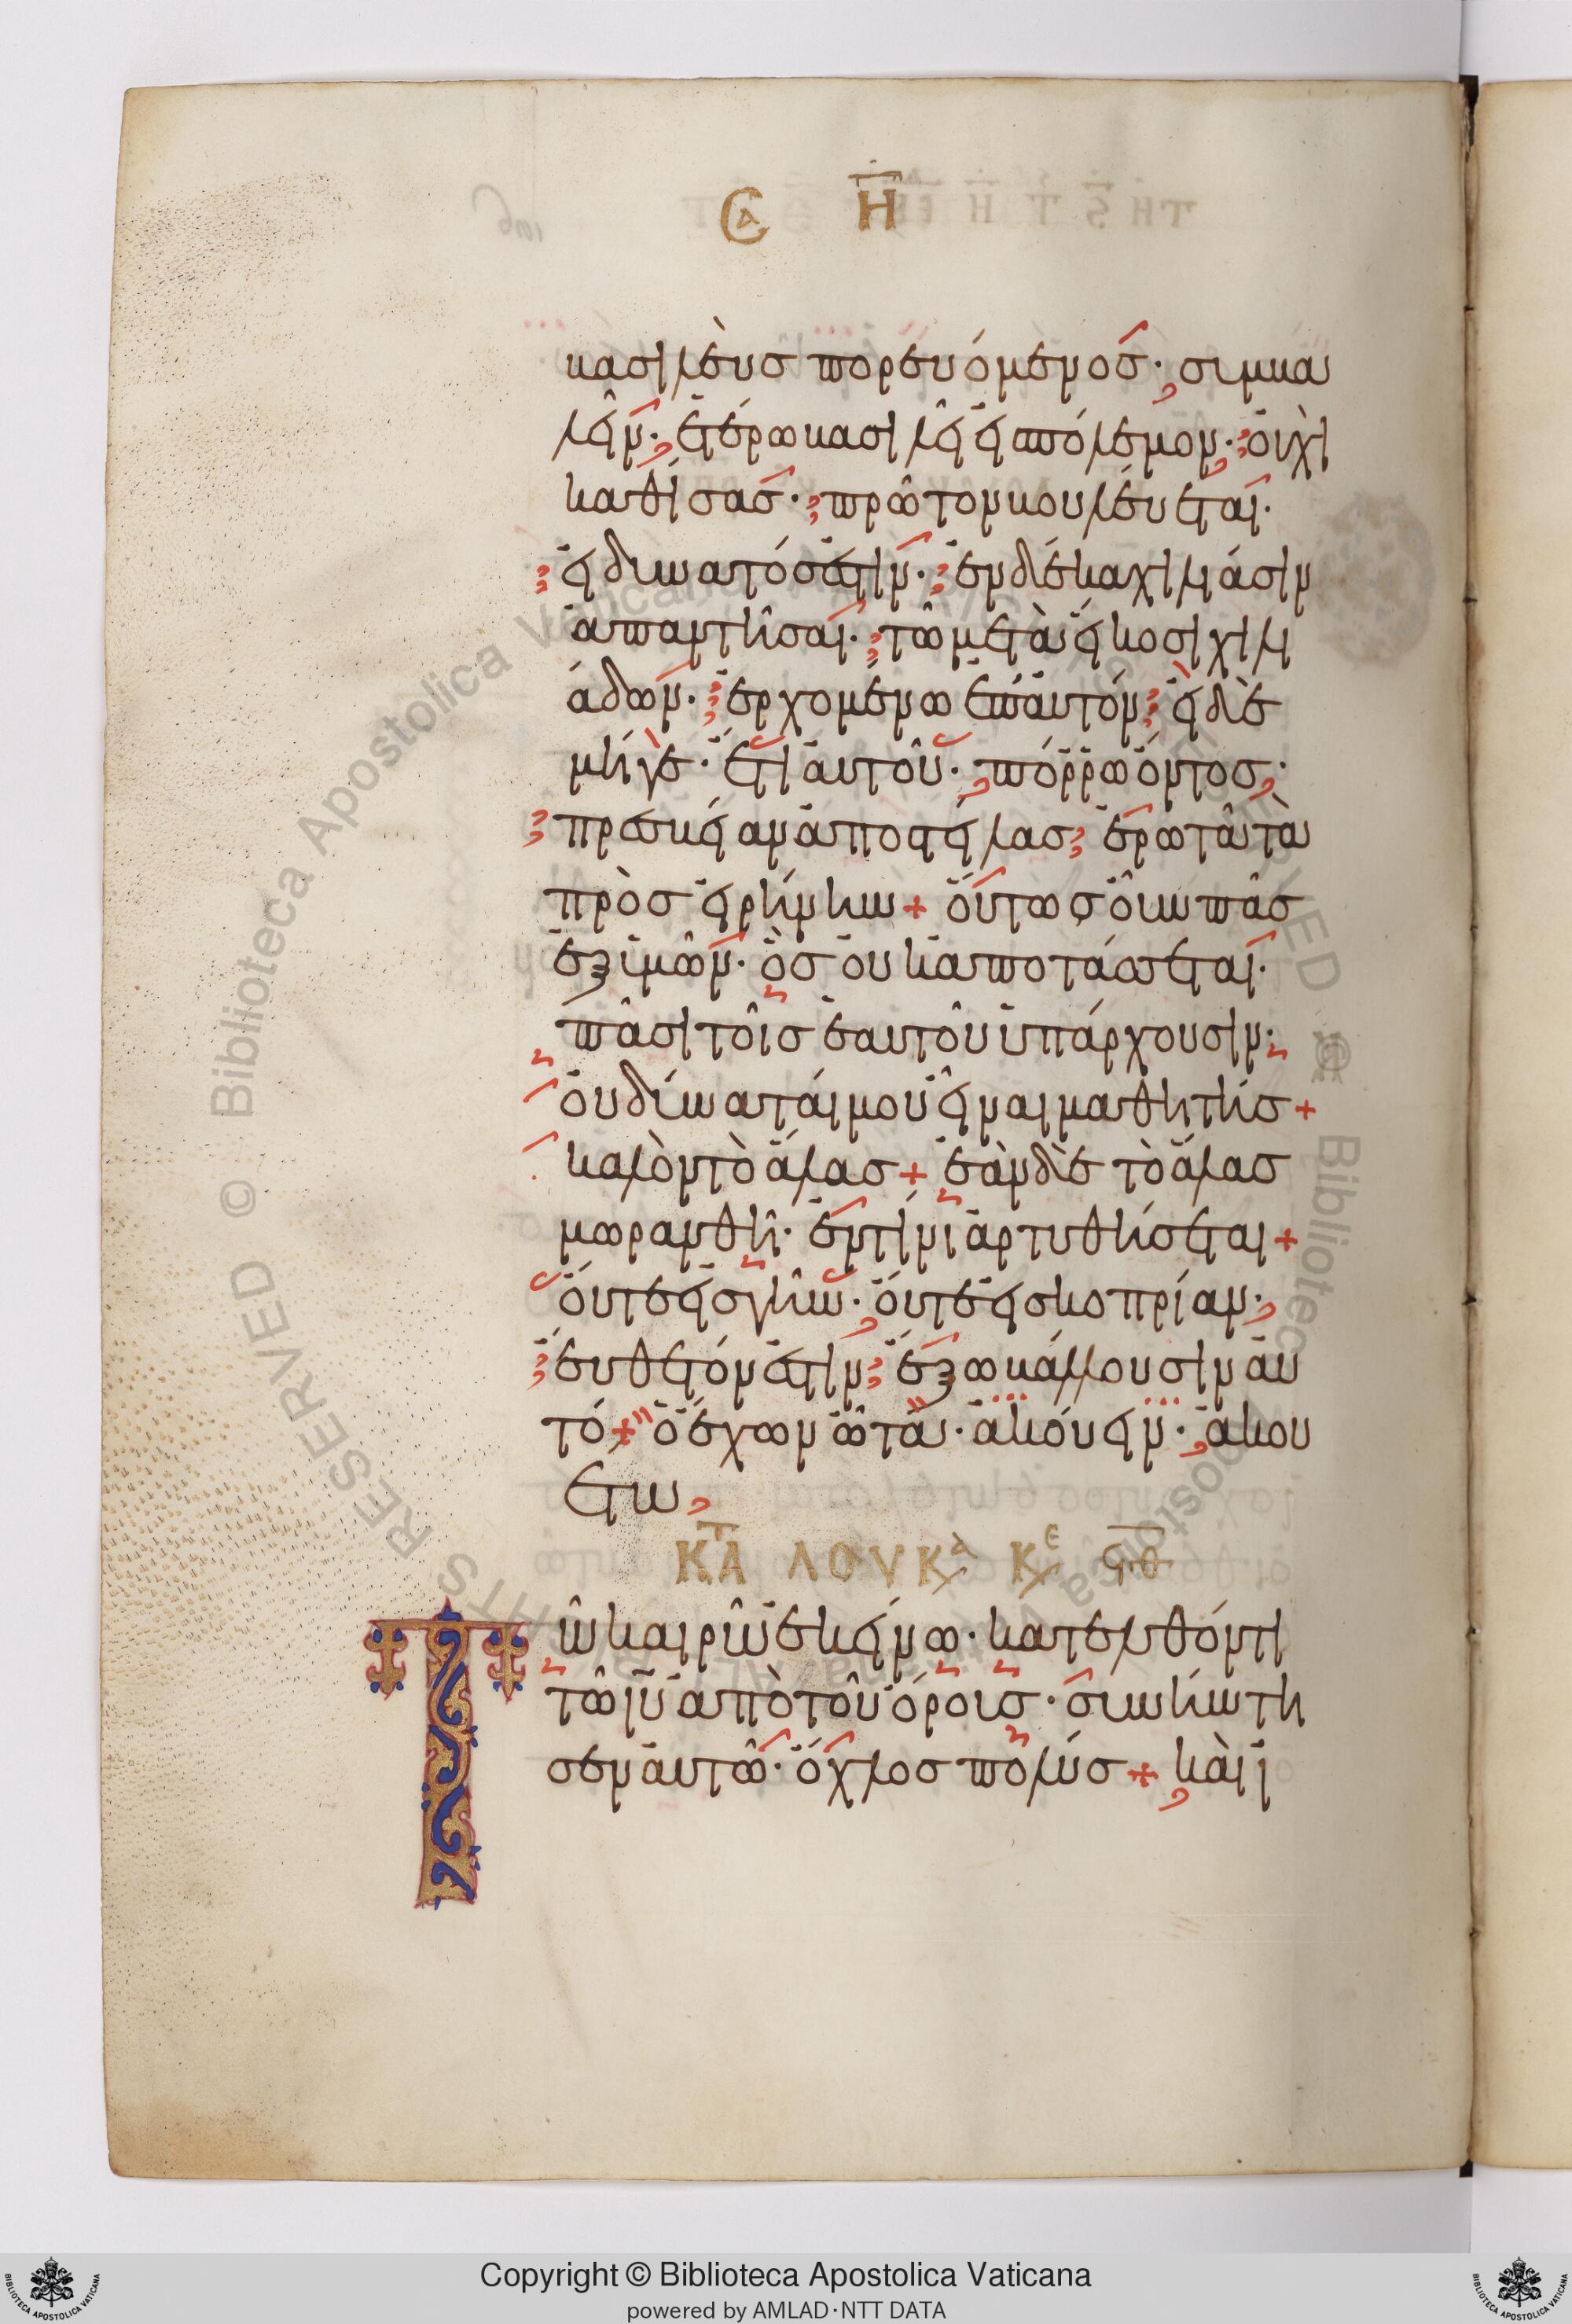 ΣΑ Η
βασιλεὺς πορευόμενος· συμβα
λεῖν· ἑτέρω βασιλεῖ εἰς πόλεμον· οὐχὶ
καθίσας· πρῶτον βουλεύεται·
εἰ δυνατός ἐστιν· ἐν δέκα χιλιάσιν
ἀπαντῆσαι· τῶ μετὰ εἴκοσι χιλι
άδων· ἐρχομένω ἐπ' αὐτόν· εἰ δὲ
μήγε· ἔτι αὐτοῦ· πόρρω ὄντος·
πρεσβείαν ἀποστείλας ἐρωτᾶ τὰ
πρὸς εἰρήνην + οὕτως οὖν πᾶς
ἐξ ὑμῶν· ὃς οὐκ ἀποτάσσεται·
πᾶσι τοῖς ἑαυτοῦ ὑπάρχουσιν·
οὐ δύναταί μου εἶναι μαθητής +
καλὸν τὸ ἅλας + ἐὰν δὲ τὸ ἅλας
μωρανθῆ· ἐν τίνι ἀρτυθήσεται +
οὔτε εἰς γῆν· οὔτε εἰς κοπρίαν·
εὔθετόν ἐστιν ἔξω βάλλουσιν αὐ
τό + ὁ ἔχων ὦτα· ἀκούειν· ἀκου
έτω
ΚΤΑ ΛΟΥΚΑ ΚΕ
Τῶ καιρῶ ἐκείνω· κατελθόντι
τῶ ΙΥ ἀπὸ τοῦ ὄρους· συνήντη
σεν αὐτῶ· ὄχλος πολύς + καὶ ἰ
Copyright © Biblioteca Apostolica Vaticana
powered by AMLAD·NTT DATA